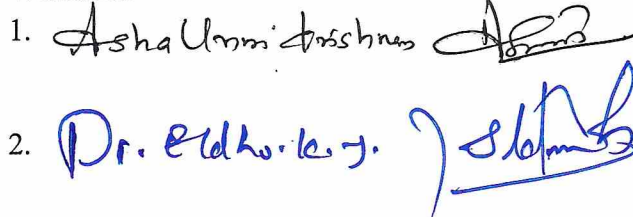 1. Asha Unnikrishnan
2. Dr. Eldho. K. J.